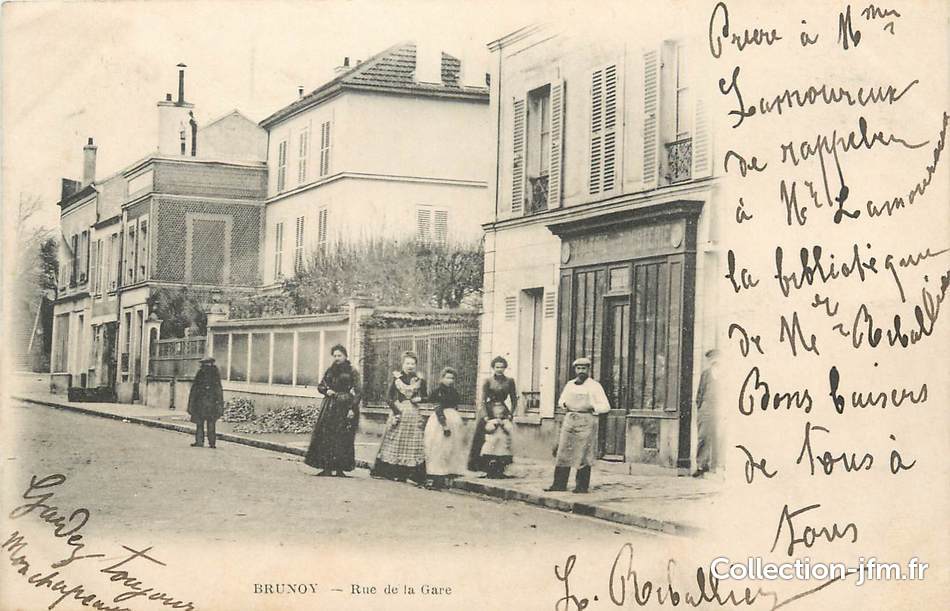 Prière à Mme
Lamoureux
de rappeler
à Mr Lamoureux
la bibliothèque
de Mr Riballier
Bons baisers
de tous à
tous
L. Riballier
Gardez toujour
mon chapeau
BRUNOY — Rue de la Gare
Collection-jfm.fr